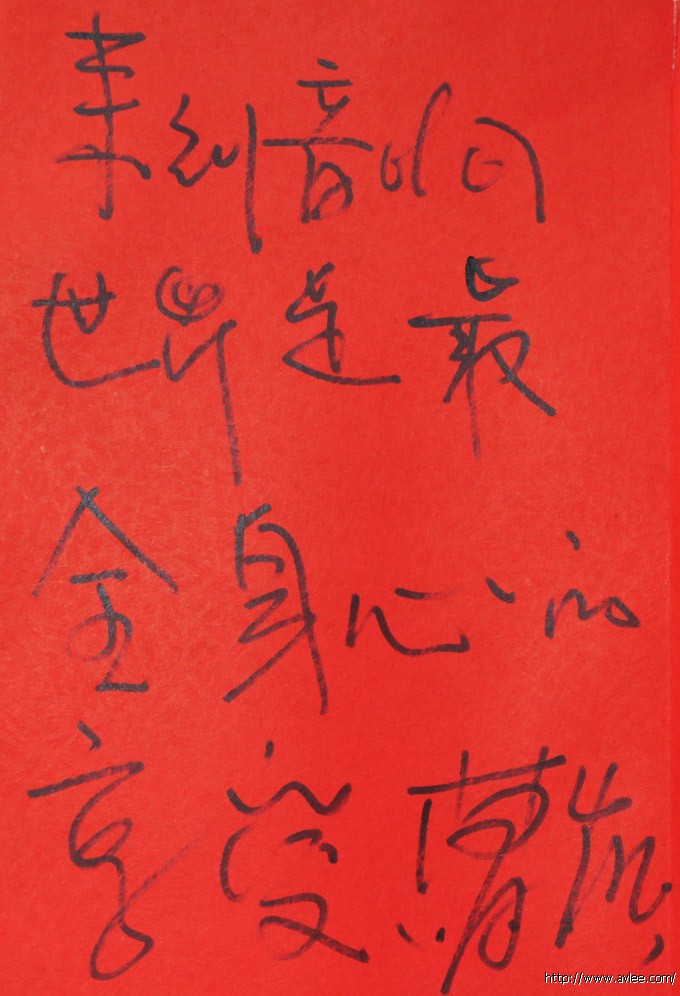 来到音响
世界是最
全身心的
享受
http://www.avlee.com/